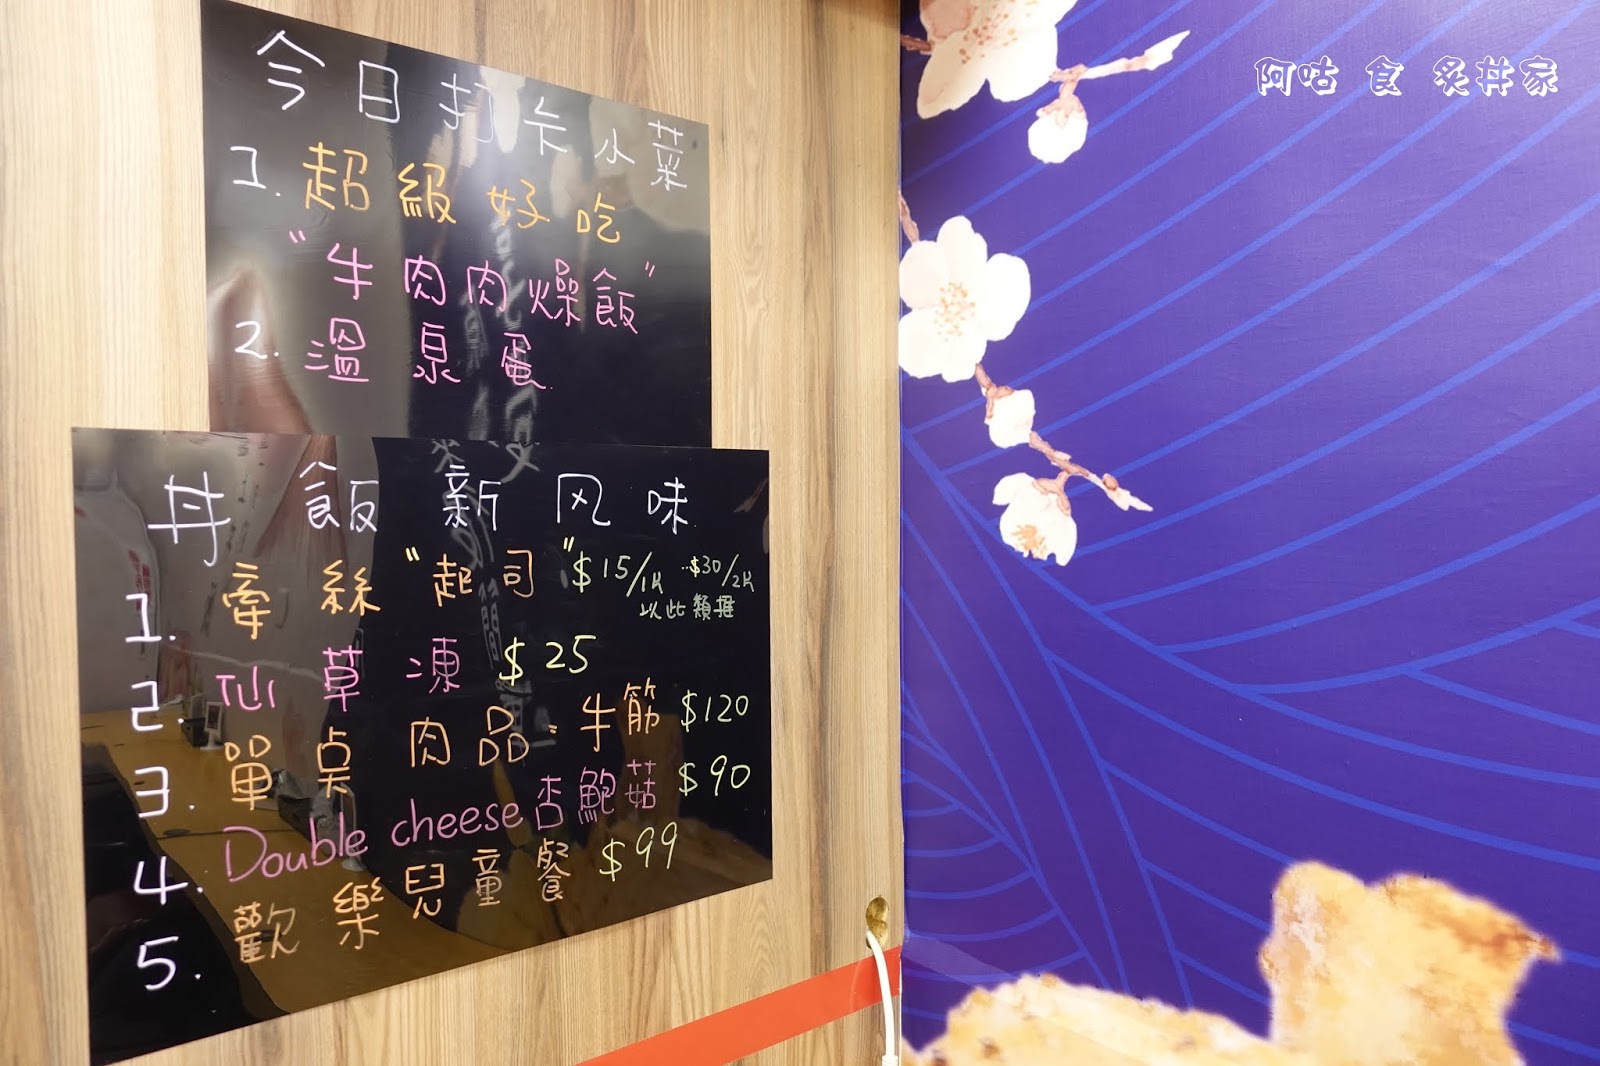 今日打卡小菜
1. 超級好吃
"牛肉肉燥飯"
2. 溫泉蛋
丼飯新风味
1. 牽絲"起司" $15/1片 $30/2片
以此類推
2. 仙草凍 $25
3. 單點肉品:牛筋 $120
4. Double cheese杏鮑菇 $90
5. 歡樂兒童餐 $99
阿咕 食 炙丼家